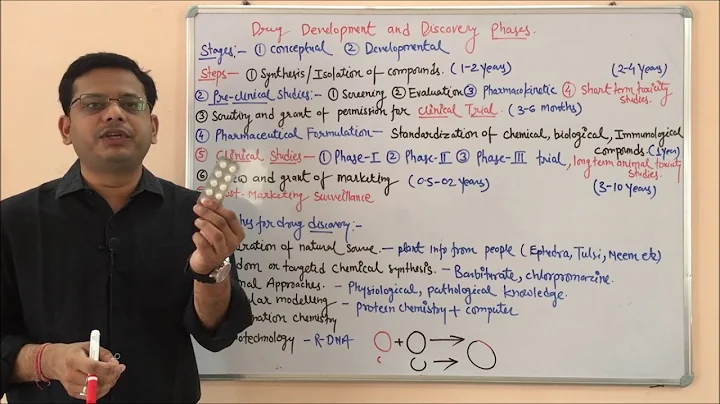 Drug Development and Discovery Phases.
Stages:- ① Conceptual ② Developmental
Steps- ① Synthesis/Isolation of compounds. (1-2 years) (2-4 years)
② Pre-clinical Studies:- ① Screening ② Evaluation ③ Pharmacokinetic ④ Short term toxicity studies.
③ Scrutiny and grant of permission for Clinical Trial. (3-6 months)
④ Pharmaceutical Formulation- Standardization of chemical, biological, Immunological compounds. (1 year)
⑤ Clinical Studies- ① Phase-I ② Phase-II ③ Phase-III trial, long term animal toxicity studies.
⑥ and grant of marketing (0.5-02 years) (3-10 years)
Post-Marketing Surveillance
for drug discovery:-
of natural source. - plant Info from people (Ephedra, Tulsi, Neem etc)
or targeted chemical synthesis. - Barbiturate, chlorpromazine.
Approaches. - Physiological, pathological knowledge.
modelling - protein chemistry + computer
chemistry
- R-DNA
+